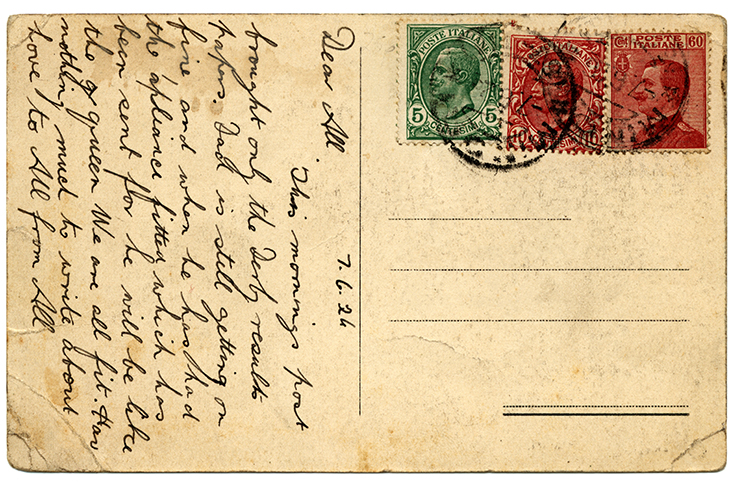 7.6.24
Dear All
This mornings post
brought only the Derby results
papers. Dad is still getting on
fine and when he has had
the apliance fitted which has
been sent for he will be like
the q queen We are all fit. Hav
nothing much to write about
love to All from All
POSTE ITALIANE
5 CENTESIMI 5
POSTE ITALIANE
10 CENTESIMI 10
POSTE 60
ITALIANE